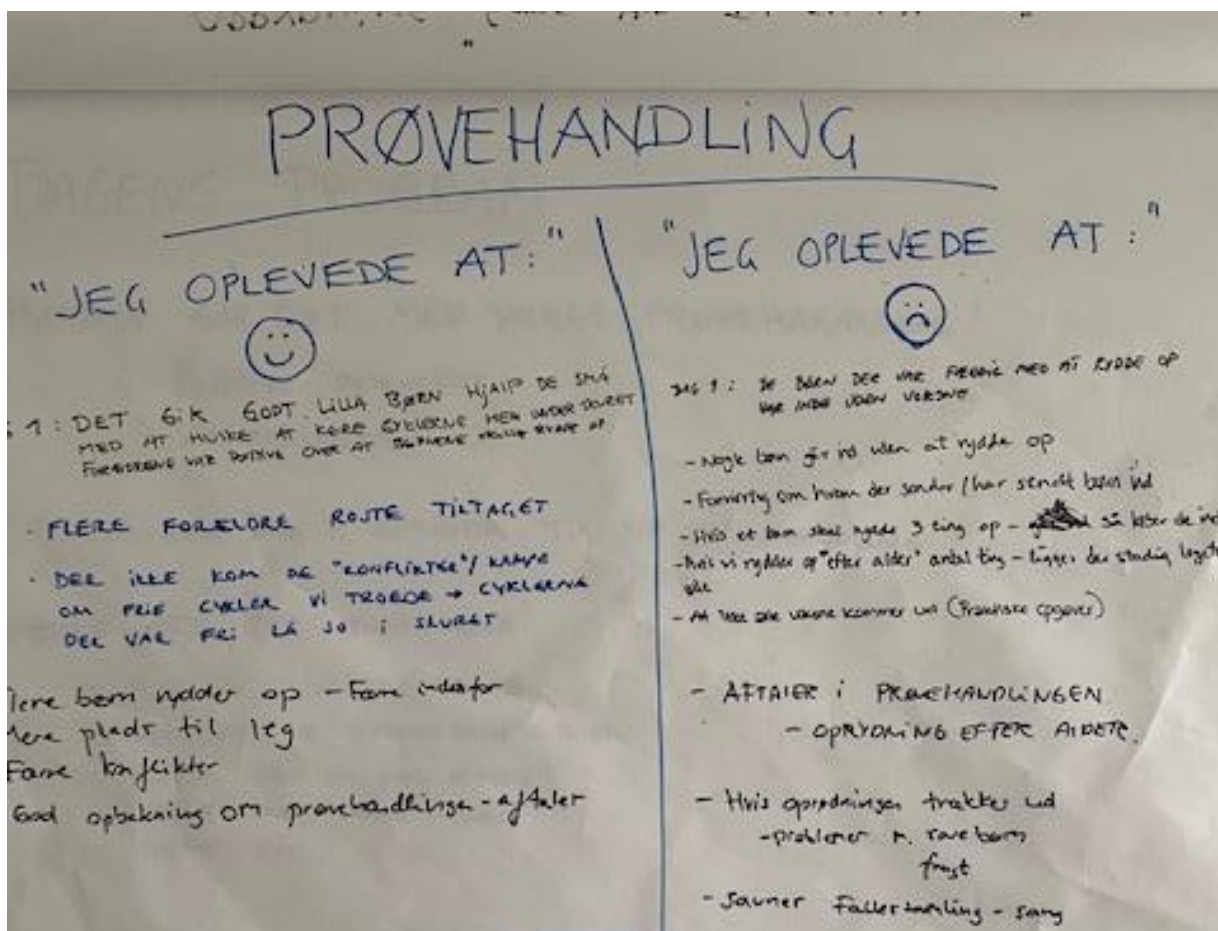 PRØVEHANDLING
"JEG OPLEVEDE AT:"
1: DET GIK GODT. LILLA BØRN HJALP DE SMÅ
MED AT HUSKE AT KØRE CYKLERNE HEN UNDER SKURET
FORÆLDRENE VAR POSITIVE OVER AT BØRNENE SKULLE RYDDE OP
· FLERE FORÆLDRE ROSTE TILTAGET
· DER IKKE KOM DE "KONFLIKTER"/KAMPE
OM FRIE CYKLER VI TROEDE → CYKLERNE
DER VAR FRI LÅ JO I SKURET
børn rydder op - Færre indenfor
plads til leg
Færre konflikter
God opbakning om prøvehandlingen - aftaler
"JEG OPLEVEDE AT:"
DAG 1: DE BØRN DER VAR FÆRDIG MED AT RYDDE OP
VAR INDE UDEN VOKSNE.
- Nogle børn går ind uden at rydde op
- Forvirring om hvem der sender / har sendt børn ind
- Hvis et barn skal rydde 3 ting op - så løber de ind
- hvis vi rydder op "efter alder" antal ting - ligger der stadig
- At ikke alle voksne kommer ud (Praktiske opgaver)
- AFTALER I PRØVEHANDLINGEN
- OPRYDNING EFTER ALDER.
- Hvis oprydningen trækker ud
- problemer m.
- Savner Fællessamling - sang